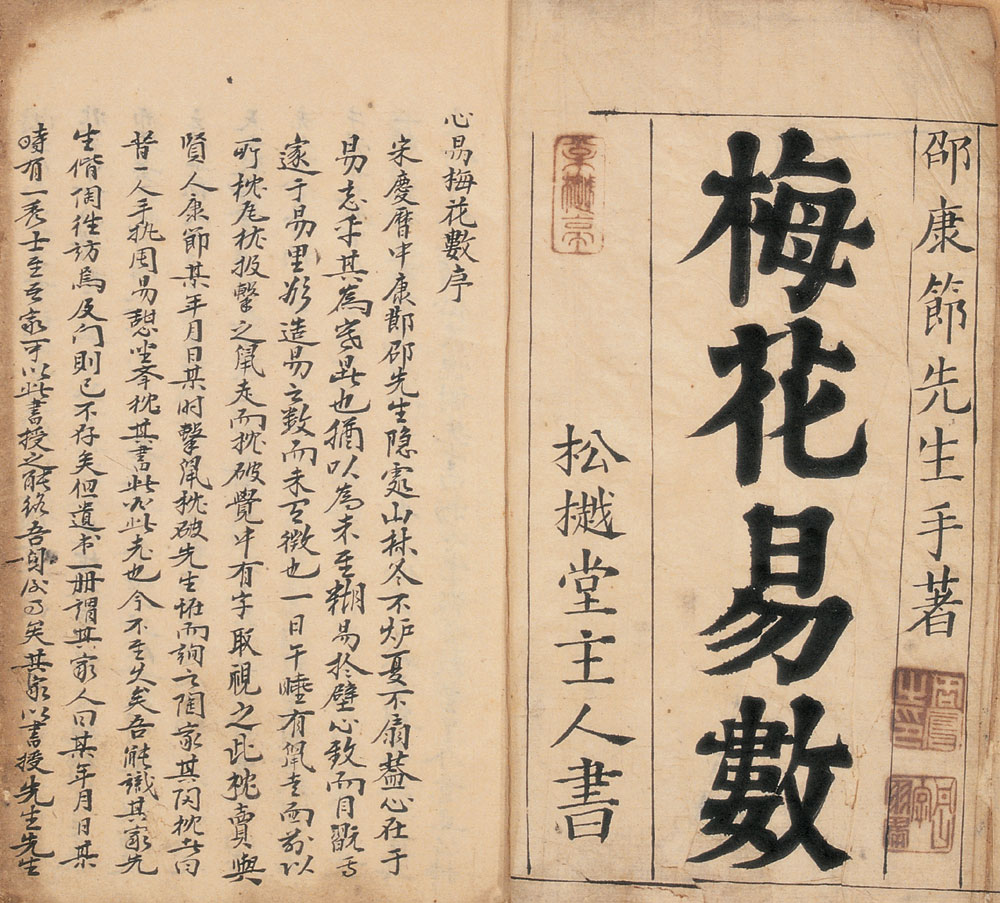 邵康節先生手著
梅花易數
松樾堂主人書
心易梅花數序
宋慶曆中康節邵先生隐處山林冬不炉夏不扇蓋心在于
易忘乎其為寒暑也猶以為未至糊易於壁心致而目翫焉
邃于易里欲造易之数而未有徴也一日午睡有鼠走而前以
所枕瓦枕投擊之鼠走而枕破覺中有字取視之此枕賣與
賢人康節某年月日某时擊鼠枕破先生怪而詢之陶家其陶枕者曰
昔一人手执周易憩坐举枕其書此必此老也今不至久矣吾能識其家先
生偕陶往訪焉及门則已不存矣但遺书一册謂其家人曰某年月日某
時有一秀士至吾家可以此書授之能終吾身後事矣其家以書授先生先生